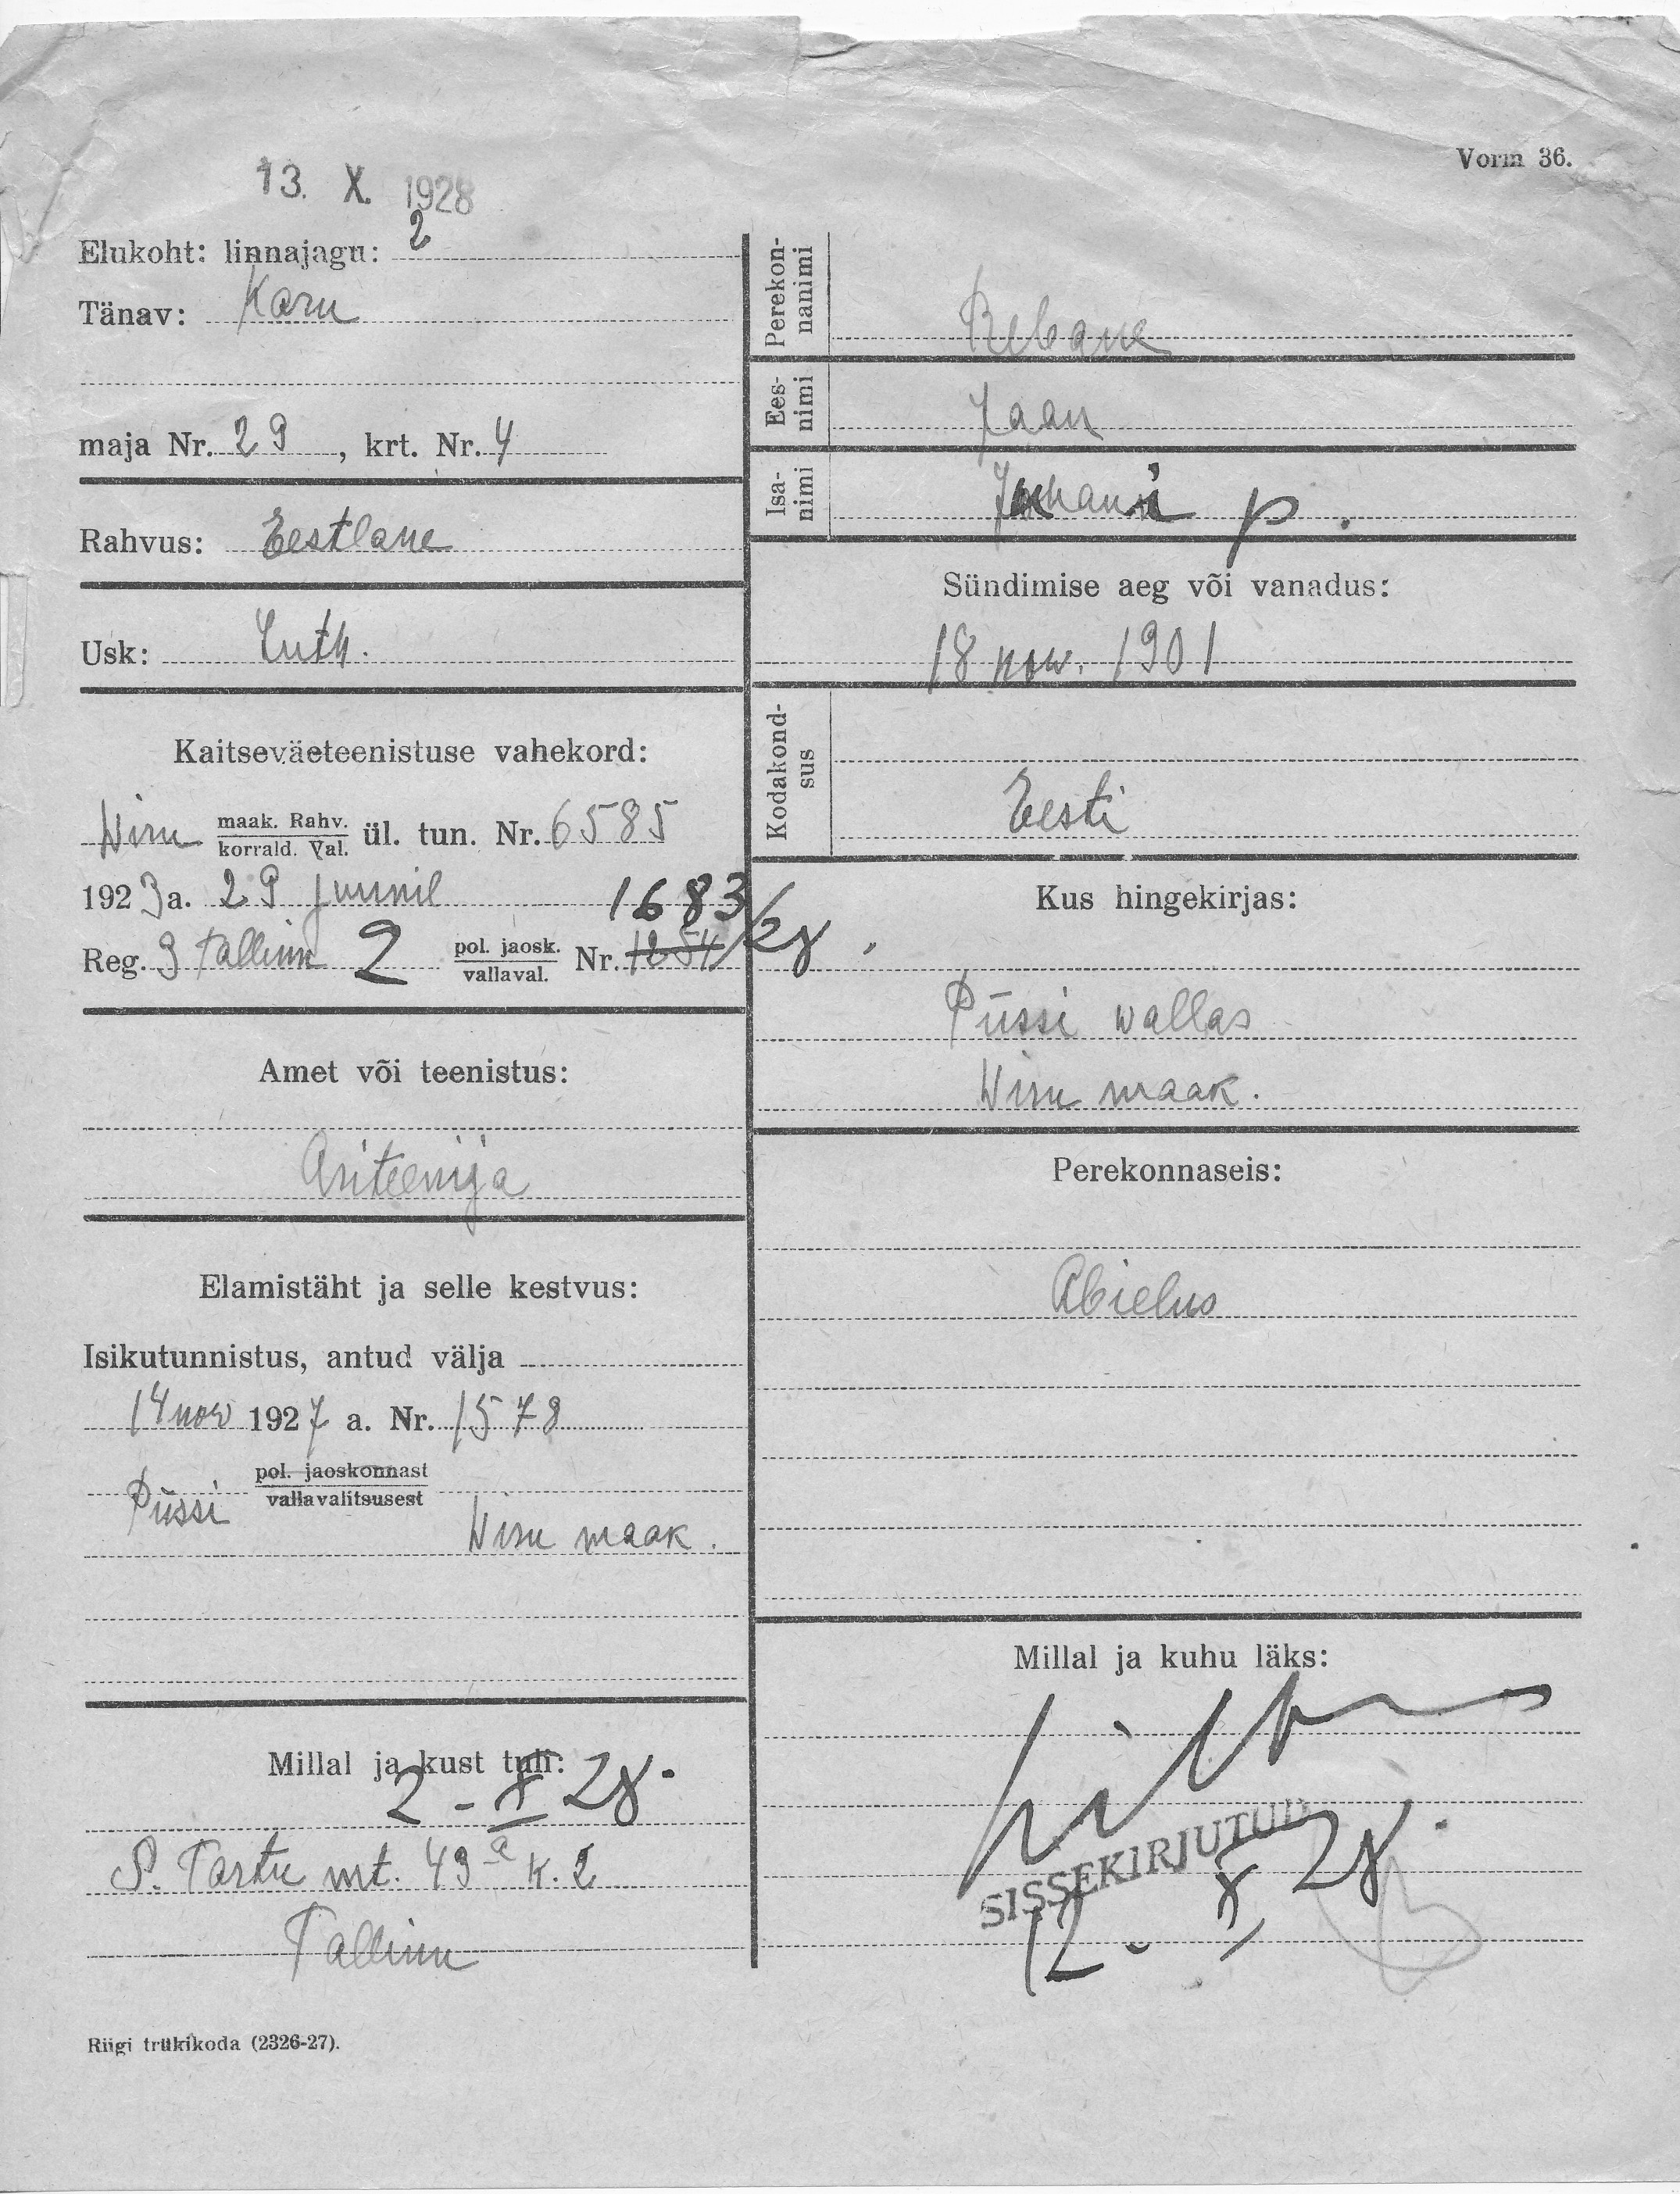 Vorm 36.
13. X. 1928
Elukoht: linnajagu: 2
Tänav: Karu
maja Nr. 29, krt. Nr. 4
Rahvus: Eestlane
Usk: Luth.
Kaitseväeteenistuse vahekord:
Wiru maak. Rahv. korrald. Val. ül. tun. Nr. 6585
1923a. 29 juunil 1683/28.
Reg. 3 Tallinn 2 pol. jaosk. vallaval. Nr. 1254
Amet või teenistus:
Äriteenija
Elamistäht ja selle kestvus:
Isikutunnistus, antud välja
14 nov 1927 a. Nr. 1578
Püssi pol. jaoskonnast vallavalitsusest
Wiru maak.
Millal ja kust tuli:
2 - X 28.
S. Tartu mt. 49 a k. 2
Tallinn
Riigi trükikoda (2326-27).
Perekon-
nanimi Rebane
Ees-
nimi Jaan
Isa-
nimi Juhani p.
Sündimise aeg või vanadus:
18 now. 1901
Kodakond-
sus Eesti
Kus hingekirjas:
Püssi wallas
Wiru maak.
Perekonnaseis:
Abielus
Millal ja kuhu läks:
SISSEKIRJUTUD
12. X 28.